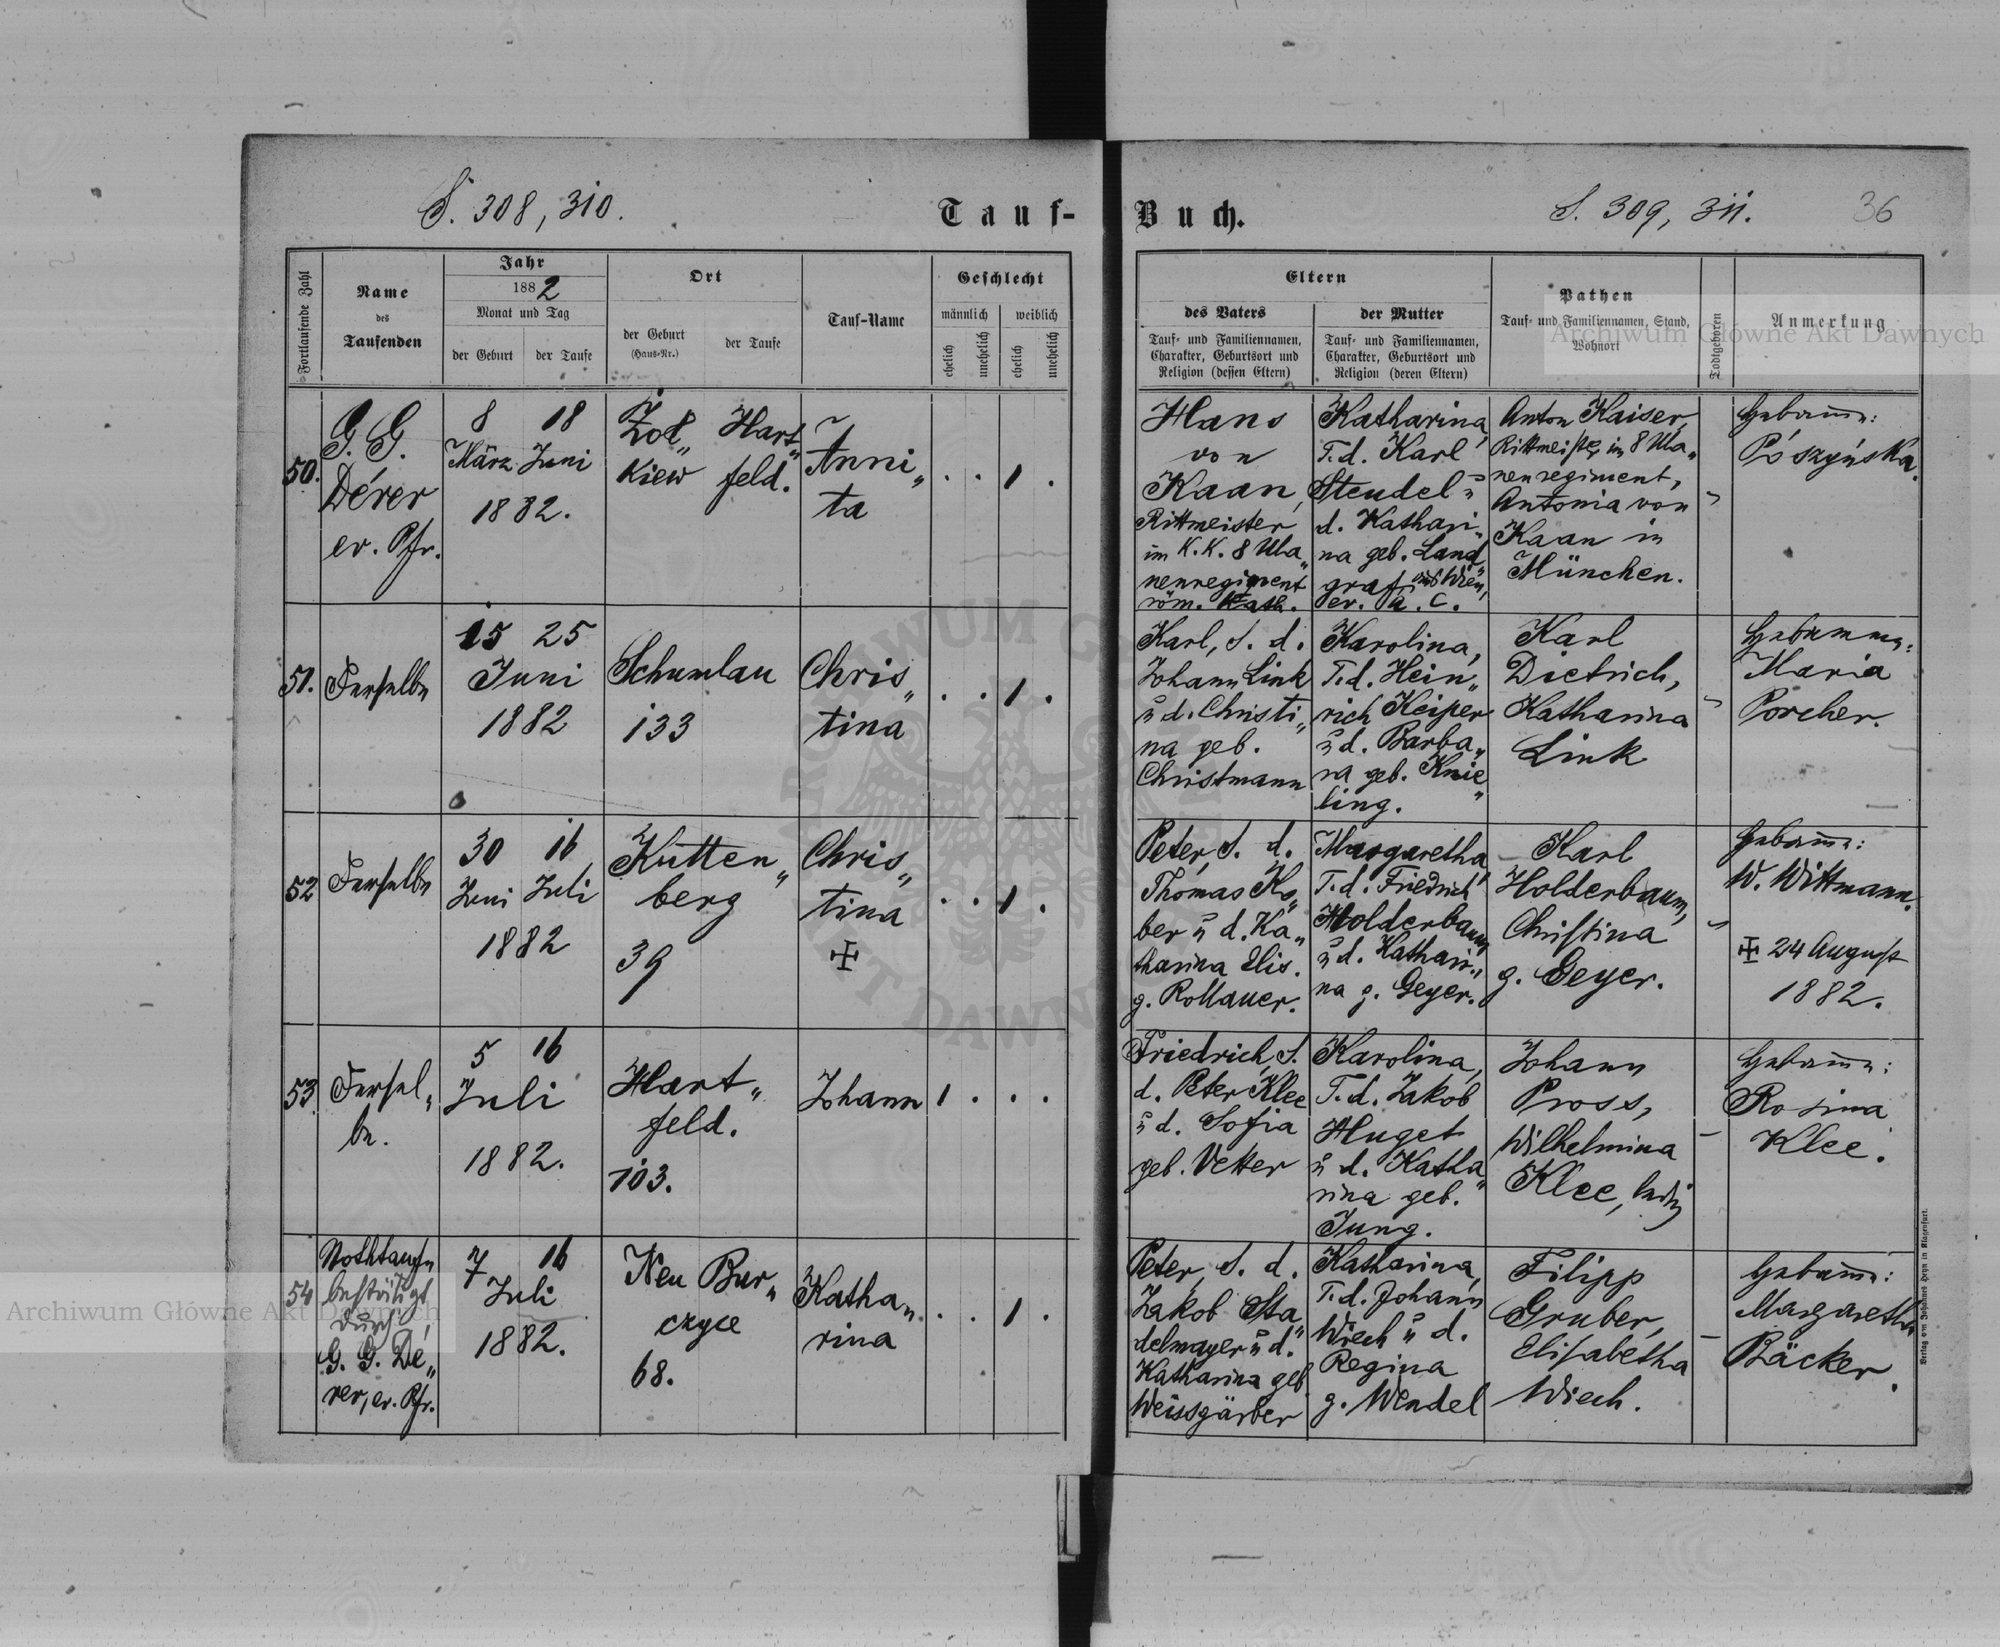 S. 308, 310.
Tauf-
Buch.
S. 309, 311.
36
Fortlaufende Zahl
Name
des
Taufenden
Jahr
1882
Monat und Tag
der Geburt
der Taufe
Ort
der Geburt
(Haus-Nr.)
der Taufe
Tauf-Name
Geschlecht
männlich
weiblich
ehelich
unehelich
ehelich
unehelich
Eltern
des Vaters
Tauf- und Familiennamen,
Charakter, Geburtsort und
Religion (dessen Eltern)
der Mutter
Tauf- und Familiennamen,
Charakter, Geburtsort und
Religion (deren Eltern)
Pathen
Tauf- und Familiennamen, Stand,
Wohnort
Todtgeboren
Anmerkung
50.
G. G.
Dérer
ev. Pfr.
8 18
März Juni
1882.
Żoł„
kiew
Hart„
feld.
Anni„
ta
. . 1 .
Hans
von
Kaan,
Rittmeister
im K. K. 8 Ula„
nenregiment
röm. Kath.
Katharina,
T. d. Karl
Steudel u
d. Kathari„
na geb. Land„
graf aus Wien,
ev. A. C.
Anton Kaiser,
Rittmeister im 8 Ula„
nenregiment,
Antonia von
Kaan in
München.
Hebamme:
Pószyńska.
51.
Derselbe
15 25
Juni
1882
Schumlau
133
Chris„
tina
. . 1 .
Karl, S. d.
Johann Link
u d. Christi„
na geb.
Christmann
Karolina,
T. d. Hein„
rich Keiper
u d. Barba„
ra geb. Knie„
ling.
Karl
Dietrich,
Katharina
Link
Hebamme:
Maria
Porcher.
52
Derselbe
30 16
Juni Juli
1882
Kutten„
berg
39
Chris„
tina
✠
. . 1 .
Peter, S. d.
Thomas Ko„
ber u d. Ka„
tharina Elis.
g. Rollauer.
Margaretha
T. d. Friedrich
Holderbaum
u d. Kathari„
na g. Geyer.
Karl
Holderbaum,
Christina
g. Geyer.
Hebamme:
W. Wittmann.
✠ 24 August
1882.
53.
Dersel„
be.
5 16
Juli
1882.
Hart„
feld.
103.
Johann
1 . . .
Friedrich, S.
d. Peter Klee
u d. Sofia
geb. Vetter
Karolina,
T. d. Jakob
Huget
u d. Katha„
rina geb.
Jung.
Johann
Pross,
Wilhelmina
Klee, ledig
Hebamme:
Rosina
Klee.
54
Nothtaufe
bestätigt
durch
G. G. Dé„
rer, ev. Pfr.
7 16
Juli
1882.
Neu Bur„
czyce
68.
Katha„
rina
. . 1 .
Peter, S. d.
Jakob Sta„
delmayer u d.
Katharina geb
Weissgärber
Katharina,
T. d. Johann
Wiech u d.
Regina
g. Wendel
Filipp
Gruber,
Elisabetha
Wiech.
Hebamme:
Margaretha
Bäcker.
Verlag von Johannes Heyn in Klagenfurt.
Archiwum Główne Akt Dawnych
Archiwum Główne Akt Dawnych